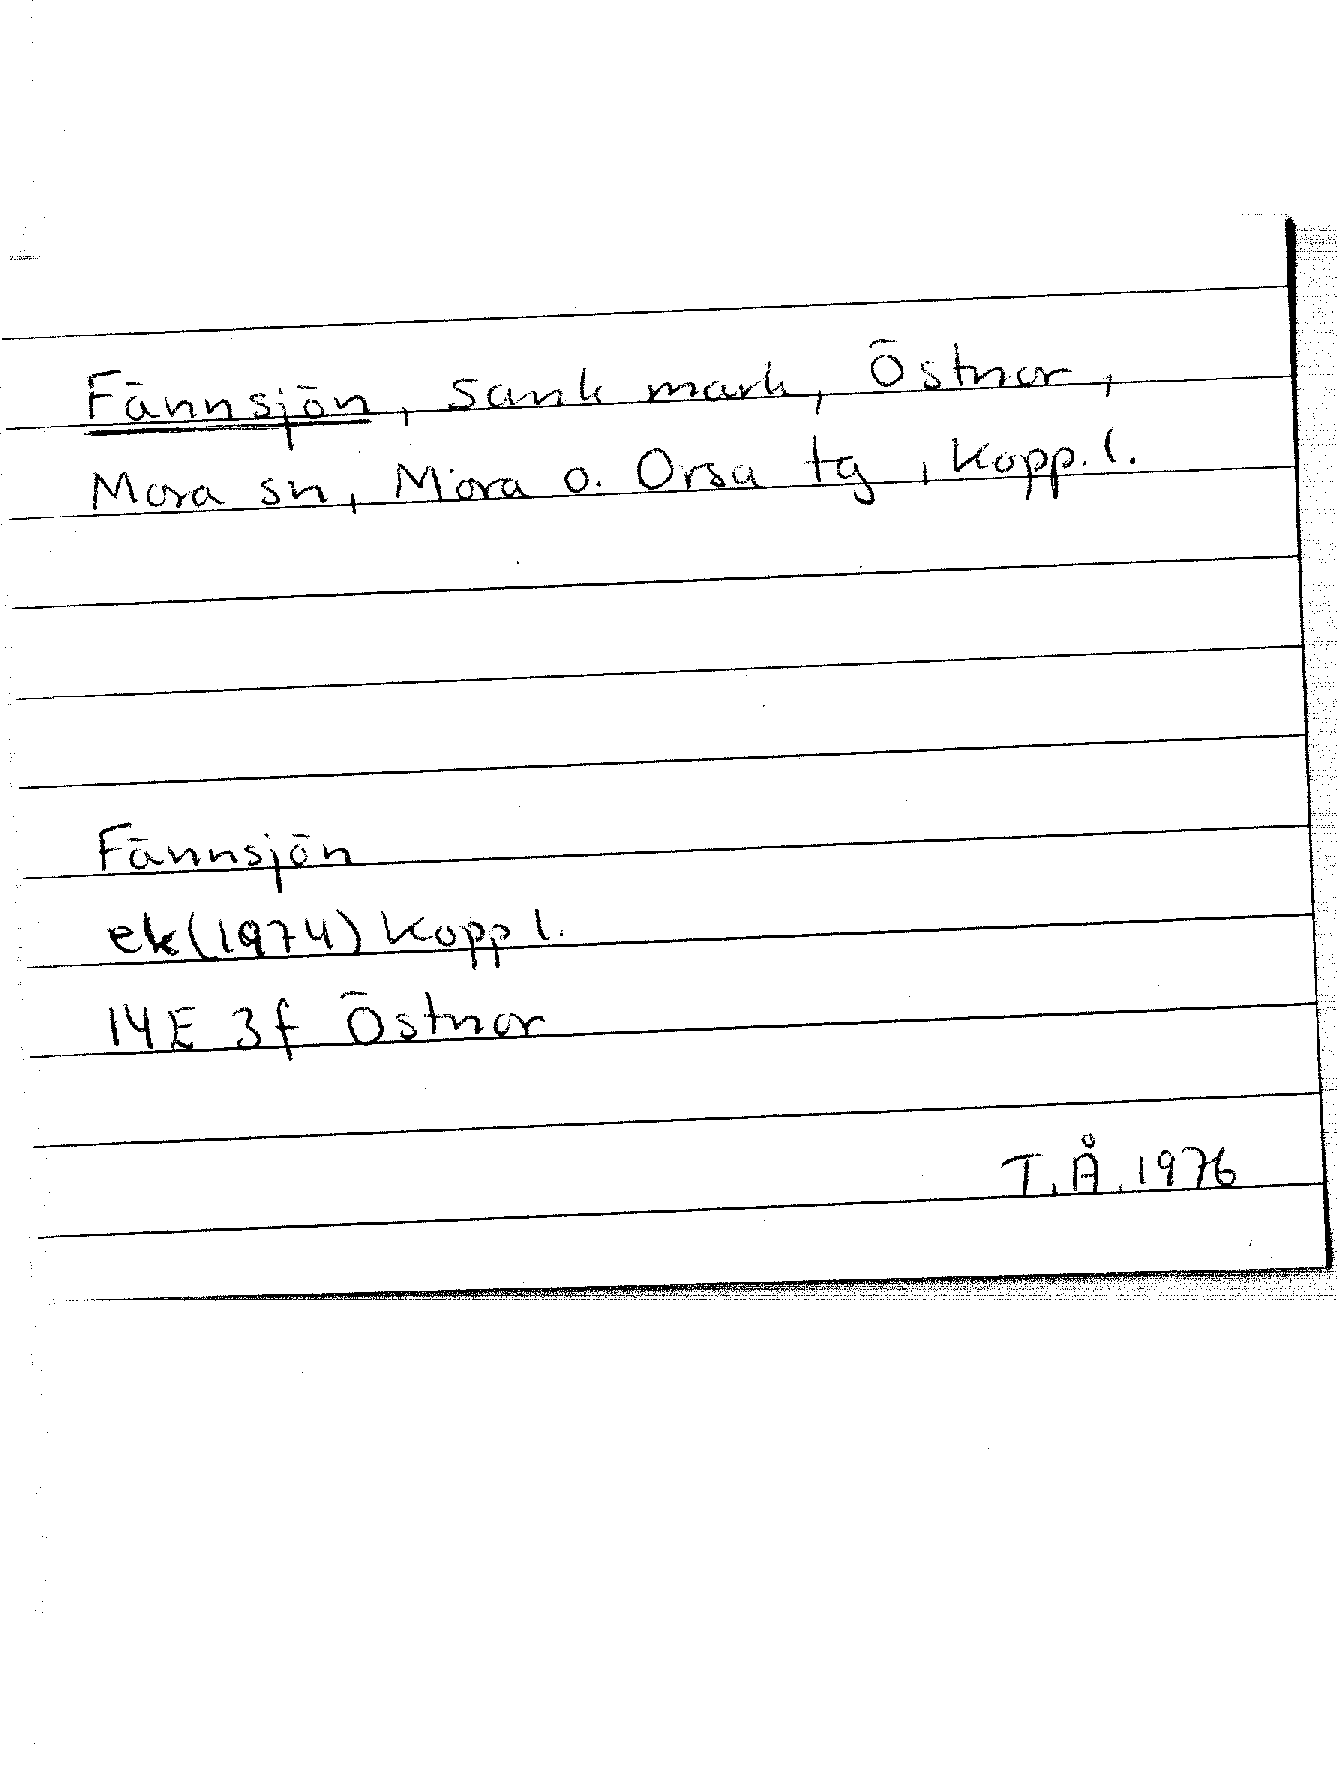 Fännsjön, sank mark, Östnor,
Mora sn, Mora o. Orsa tg, Kopp. l.
Fännsjön
ek (1974) Kopp l.
14E 3f Östnor
T.Å. 1976